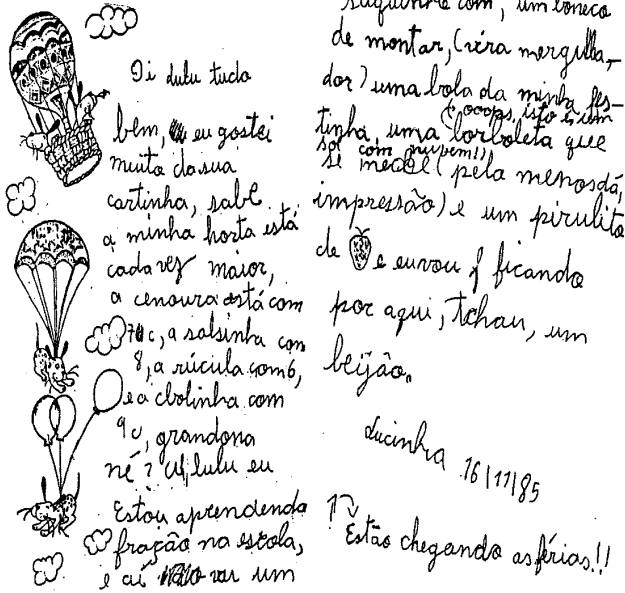 Oi lulu tudo
bem, eu gostei
muito da sua
cartinha, sabe
a minha horta está
cada vez maior,
a cenoura está com
7 c, a salsinha com
8, a rúcula com 6,
e a cbolinha com
9 c, grandona
né? lulu eu
Estou aprendendo
fração na escola,
e aí vai um
saquinho com, um boneco
de montar, (vira mergulha-
dor) uma bola da minha fes-
tinha, uma borboleta que
(ooops, isto é um
sol com nuvem!!)
se mede (pela menos dá,
impressão) e um pirulito
de e eu vou ficando
por aqui, tchau, um
beijão.
Lucinha 16/11/85
Estão chegando as férias!!